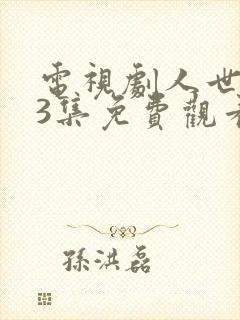 電視劇人世
3集免費觀看
孫洪磊